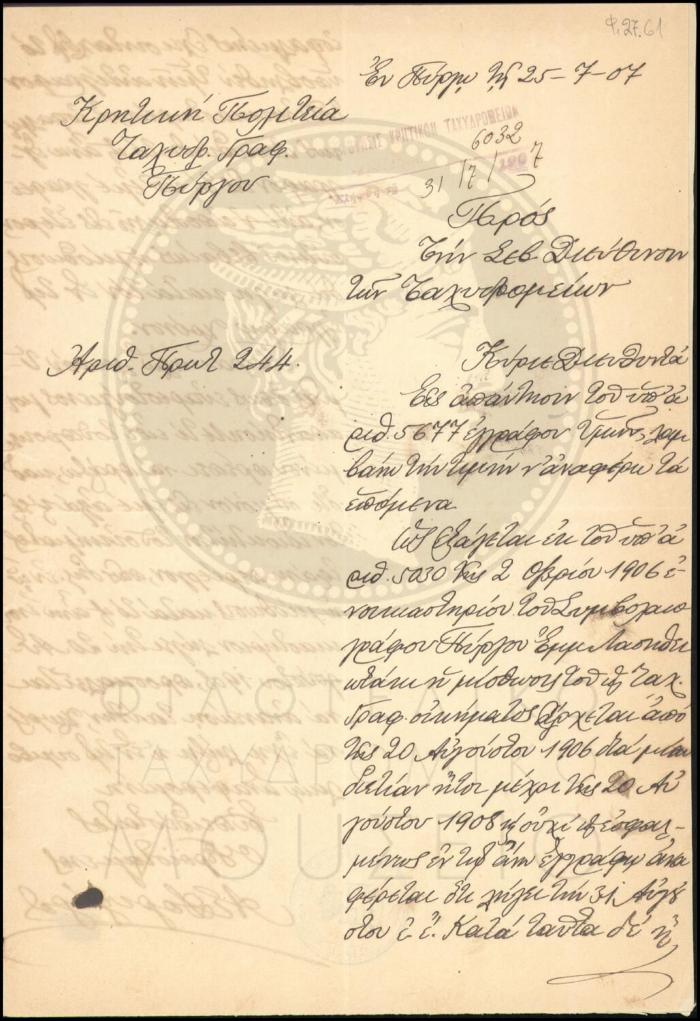 Φ. 27.61
Ἐν Πύργῳ τῇ 25-7-07
Κρητική Πολιτεία
Ταχυδρ. Γραφ.
Πύργου
ΚΡΗΤΙΚΩΝ ΤΑΧΥΔΡΟΜΕΙΩΝ
6032
31/7/1907
Πρός
Τήν Σεβ. Διεύθυνσιν
τῶν Ταχυδρομείων
Ἀριθ. Πρωτ 244.
Κύριε Διευθυντά
Εἰς ἀπάντησιν τοῦ ὑπ' ἀ
ριθ. 5677 ἐγγράφου Ὑμῶν, λαμ
βάνω τήν τιμήν ν' ἀναφέρω τά
ἑπόμενα
Ὡς ἐξάγεται ἐκ τοῦ ὑπ' ἀ
ριθ. 5030 τῆς 2 Οβρίου 1906 ἐ
νοικιαστηρίου τοῦ Συμβολαιο
γράφου Πύργου Ἐμμ
ἡ μίσθωσις τοῦ Ταχ.
Γραφ. οἰκήματος ἄρχεται ἀπό
τῆς 20 Αὐγούστου 1906 διά μίαν
διετίαν ἤτοι μέχρι τῆς 20 Αὐ
γούστου 1908 οὐχί ἐσφαλ-
μένως ἐν τῷ ἄνω ἐγγράφῳ ἀνα
φέρεται ὅτι λήγει τήν 31 Αὐγού
στου ἐ. ἔ. Κατά ταῦτα δέ ἡ
ΦΙΛΟΤΕΛΙΚΟ
ΤΑΧΥΔΡΟΜΙΚΟ
ΜΟΥΣΕΙΟ